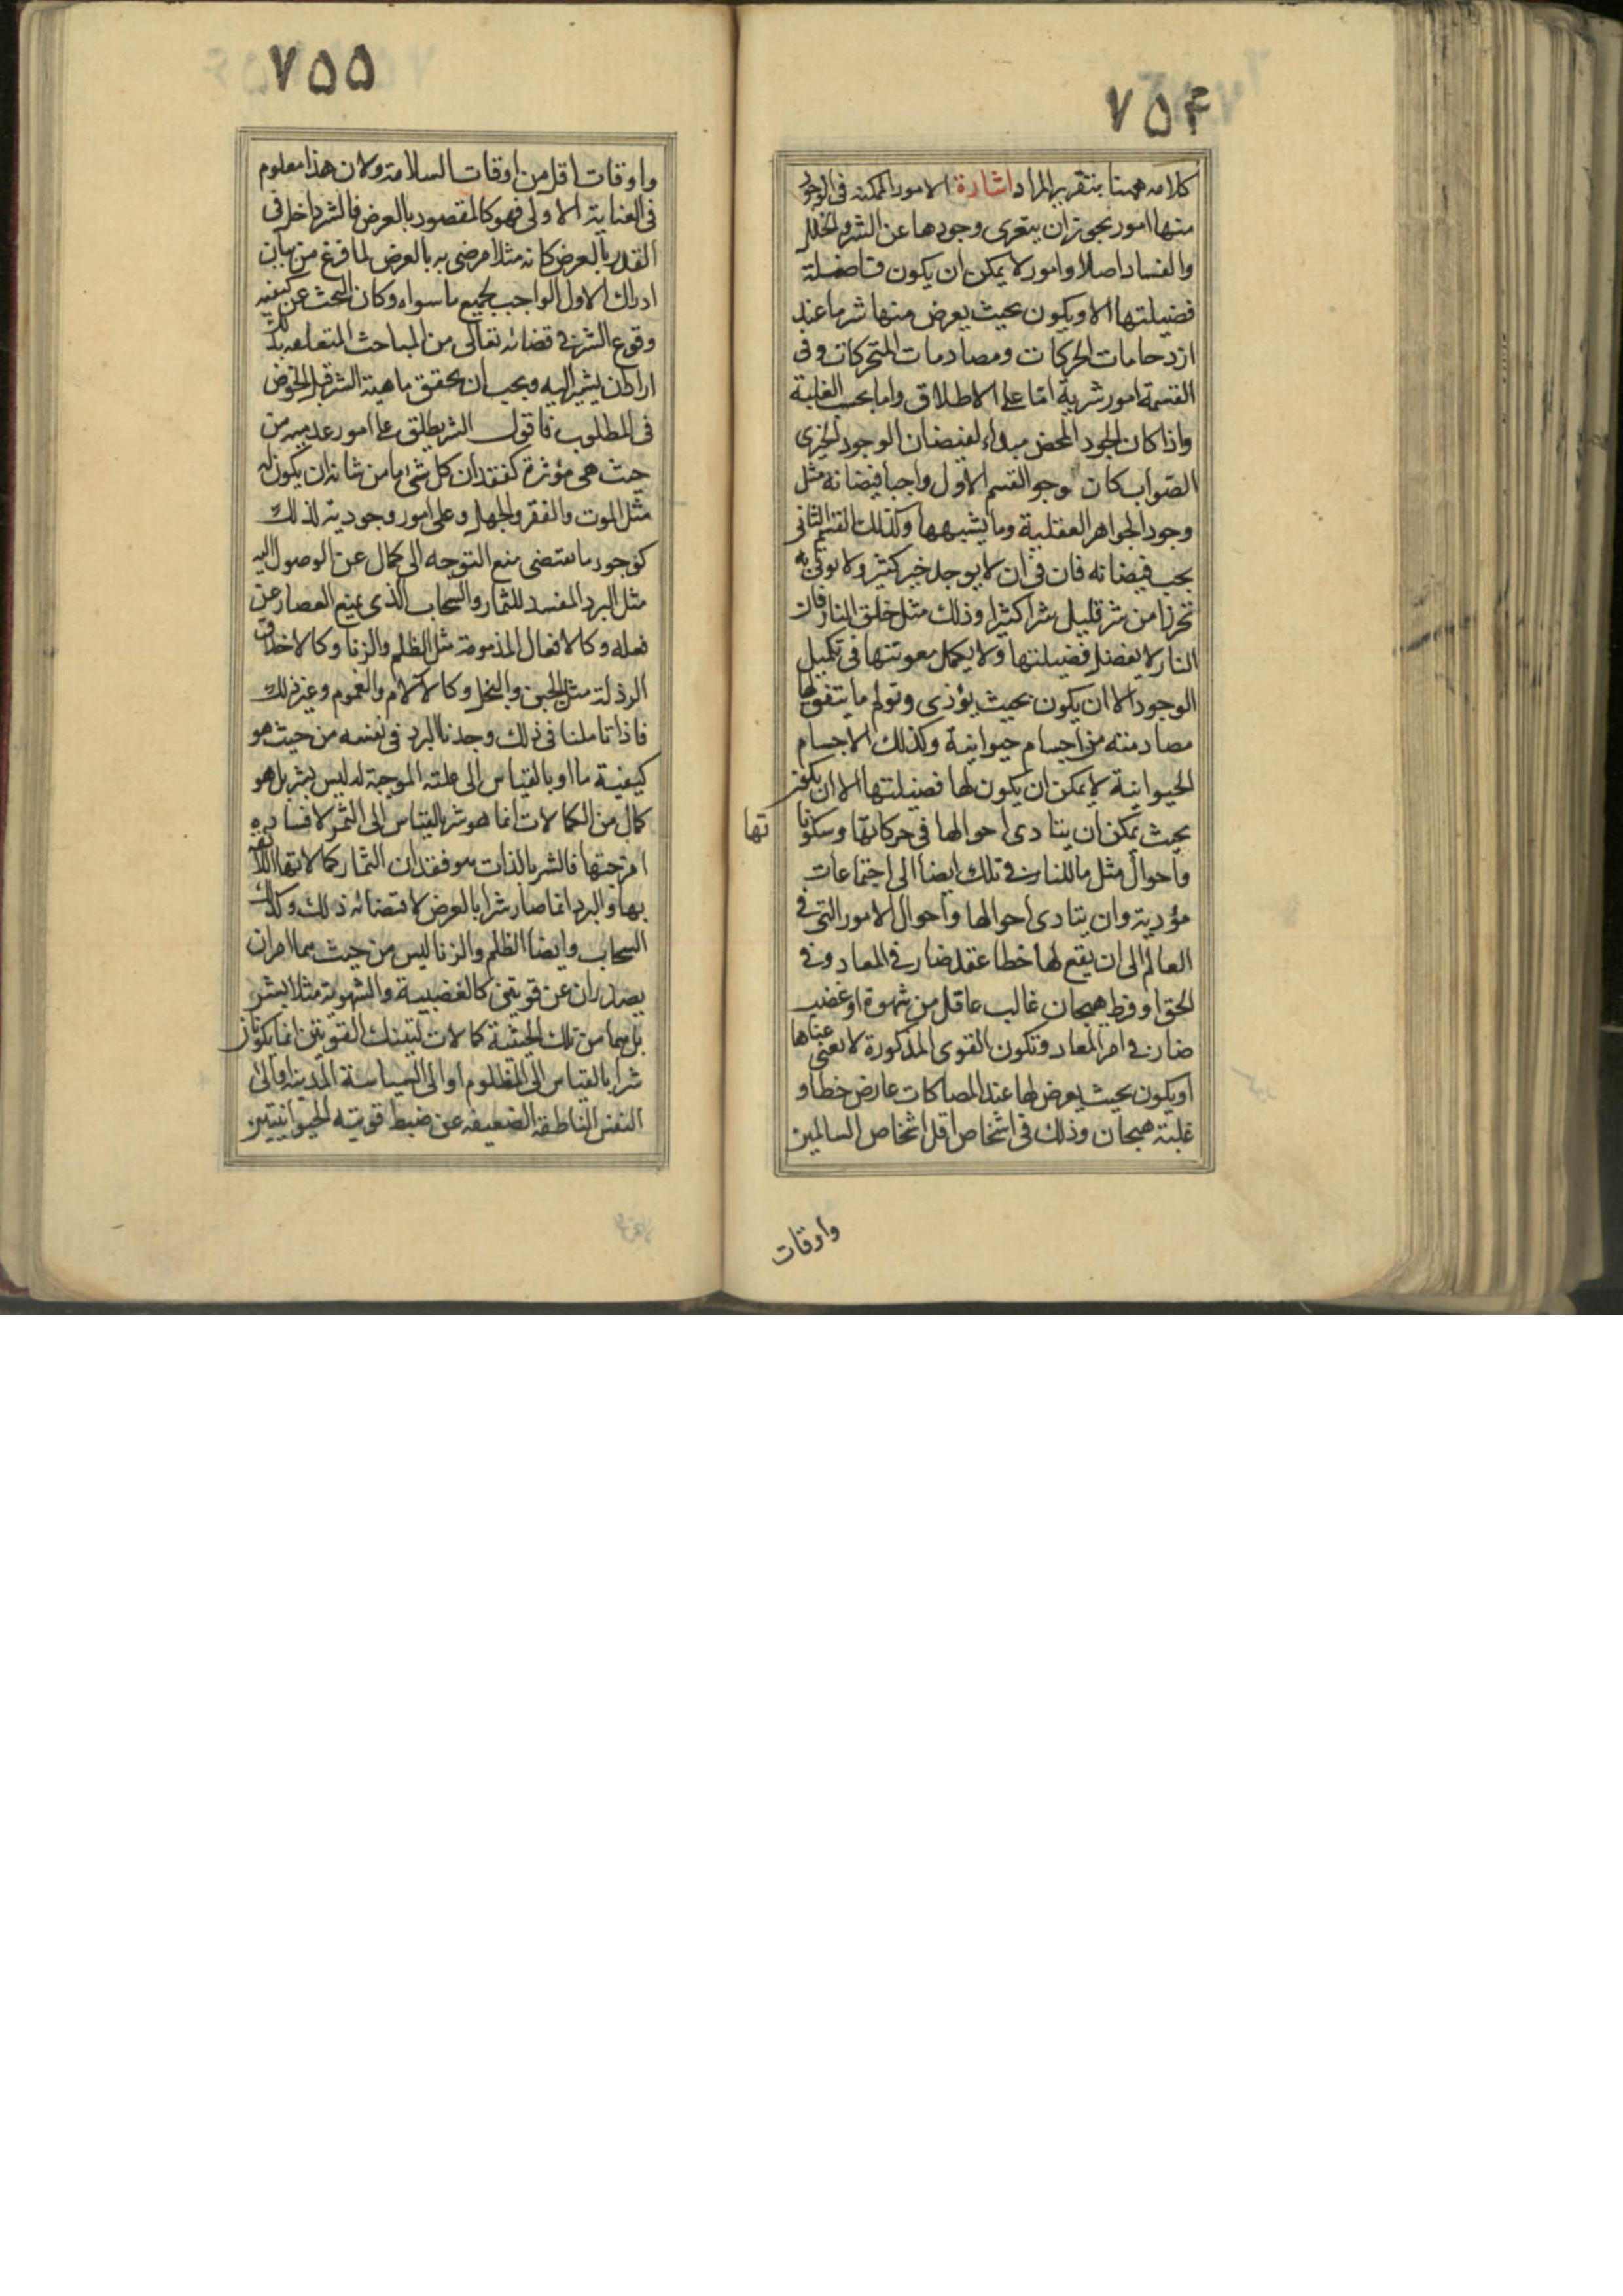 ۷۵۴
كلامه ههنا بتقرير المراد اشارة الامور الممكنة فى الوجود
منها امور يجوز ان يتعرى وجودها عن الشر والخلل
والفساد اصلا وامور لا يمكن ان يكون فاضلة
فضيلتها الا ويكون بحيث يعرض منها شر ما عند
ازدحامات الحركات ومصادمات المتحركات وفى
القسمة امور شرية اما على الاطلاق واما بحسب الغلبة
واذا كان الجود المحض مبدا لفيضان الوجود الخيرى
الصواب كان وجود القسم الاول واجبا فيضانه مثل
وجود الجواهر العقلية وما يشبهها وكذلك القسم الثانى
يجب فيضانه فان فى ان لا يوجد خير كثير ولا يوتى به
تحرزا من شر قليل شرا كثيرا وذلك مثل خلق النار فان
النار لا يفضل فضيلتها ولا يكمل معونتها فى تكميل
الوجود الا ان يكون بحيث يؤذى وتولم ما يتفق لها
مصادمته من اجسام حيوانية وكذلك الاجسام
الحيوانية لا يمكن ان يكون لها فضيلتها الا ان يكون
بحيث يمكن ان يتادى احوالها فى حركاتها وسكونا
تها
واحوال مثل ما للنار فى تلك ايضا الى اجتماعات
مؤدية وان يتادى احوالها واحوال الامور التى فى
العالم الى ان يقع لها خطا عقد ضار فى المعاد وفى
الحق او فرط هيجان غالب عاقل من شهوة او غضب
ضار فى امر المعاد وتكون القوى المذكورة لا تعنى عناها
او يكون بحيث يعرض لها عند المصاكات عارض خطا و
غلبة هيجان وذلك فى اشخاص اقل اشخاص السالمين
واوقات
۷۵۵
واوقات اقل من اوقات السلامة ولان هذا معلوم
فى العناية الاولى فهو كالمقصود بالعرض فالشر داخل فى
القدر بالعرض كانه مثلا مرضى به بالعرض لما فرغ من بيان
ادراك الاول الواجب لجميع ما سواه وكان البحث عن كيفية
وقوع الشر فى قضائه تعالى من المباحث المتعلقة بذلك
اراد ان يشير اليه ويجب ان يحقق ماهية الشر قبل الخوض
فى المطلوب فاقول الشر يطلق على امور عدمية من
حيث هى مؤثرة كفقدان كل شئ ما من شانه ان يكون له
مثل الموت والفقر والجهل وعلى امور وجودية لذلك
كوجود ما يقتضى منع التوجه الى كمال عن الوصول اليه
مثل البرد المفسد للثمار والسحاب الذى يمنع القصار عن
فعله وكالافعال المذمومة مثل الظلم والزنا وكالاخلاق
الرذلة مثل الجبن والبخل وكالآلام والغموم وغير ذلك
فاذا تاملنا فى ذلك وجدنا البرد فى نفسه من حيث هو
كيفية ما او بالقياس الى علته الموجبة له ليس بشر بل هو
كمال من الكمالات انما هو شر بالقياس الى الثمر لافساده
امزجتها فالشر بالذات هو فقدان الثمار كمالاتها اللائقة
بها والبرد انما صار شرا بالعرض لاقتضائه ذلك وكذلك
السحاب وايضا الظلم والزنا ليس من حيث هما امران
يصدران عن قوتين كالغضبية والشهوية مثلا بشر
بل هما من تلك الحيثية كمالات لتينك القوتين انما يكونان
شرا بالقياس الى المظلوم او الى السياسة المدينة او الى
النفس الناطقة الضعيفة عن ضبط قوتيه الحيوانيتين